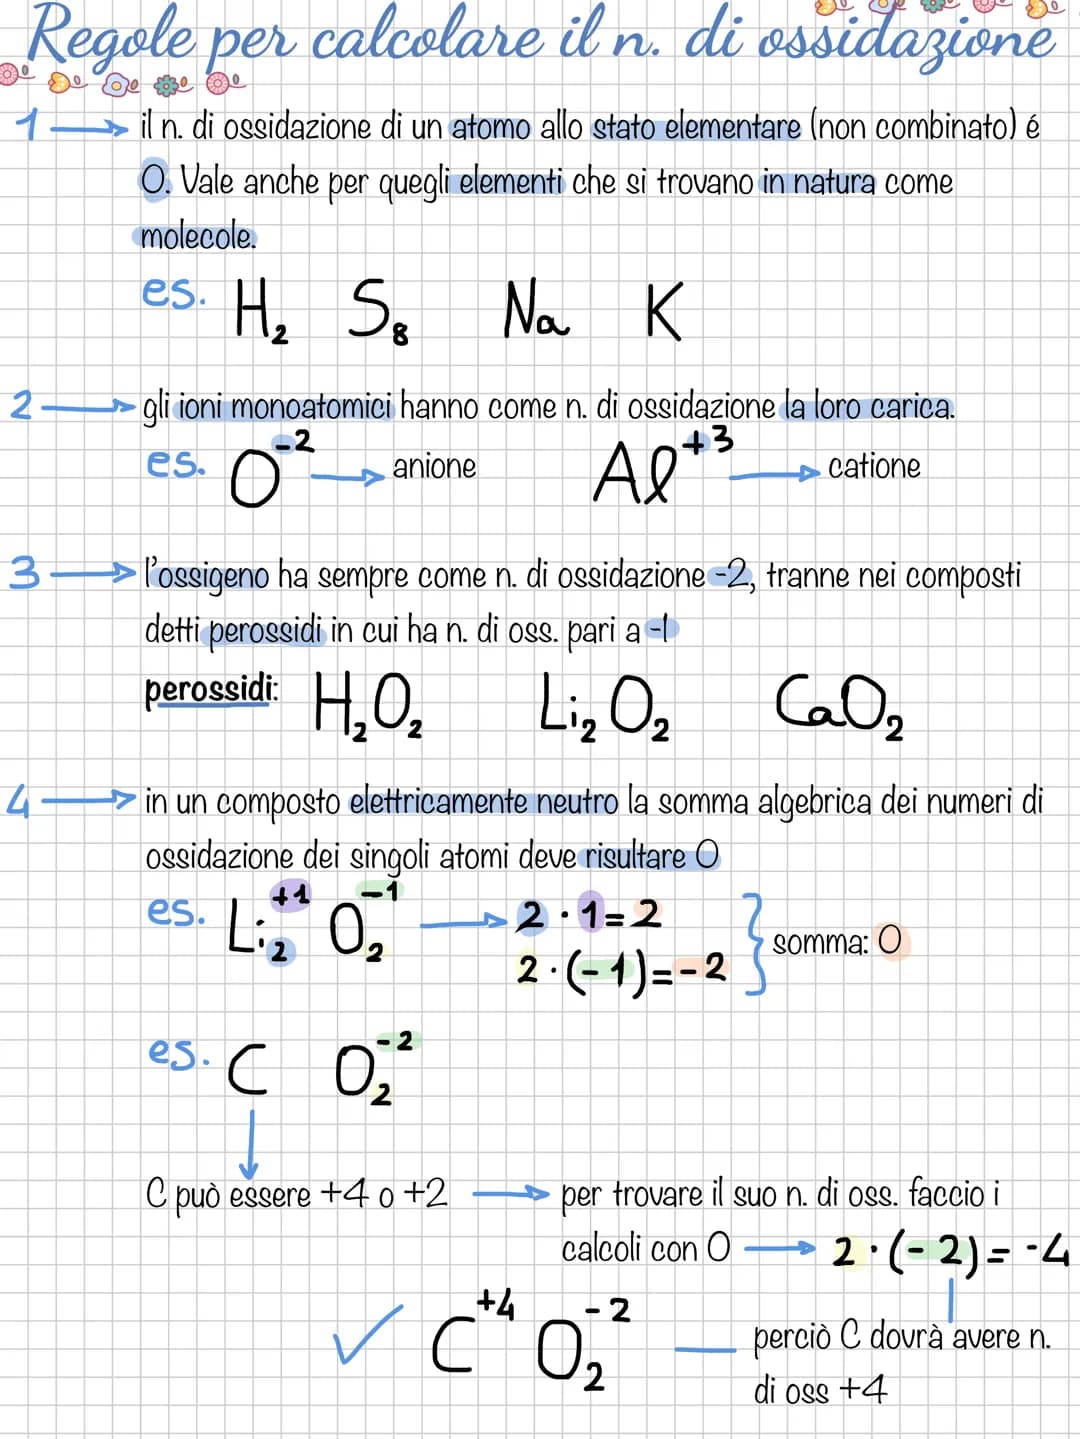 Regole per calcolare il n. di ossidazione
1 → il n. di ossidazione di un atomo allo stato elementare (non combinato) é
0. Vale anche per quegli elementi che si trovano in natura come
molecole.
es. H₂ S₈ Na K
2 → gli ioni monoatomici hanno come n. di ossidazione la loro carica.
es. O⁻² → anione Al⁺³ → catione
3 → l'ossigeno ha sempre come n. di ossidazione -2, tranne nei composti
detti perossidi in cui ha n. di oss. pari a -1
perossidi: H₂O₂ Li₂O₂ CaO₂
4 → in un composto elettricamente neutro la somma algebrica dei numeri di
ossidazione dei singoli atomi deve risultare 0
es. Li₂⁺¹ O₂⁻¹ → 2 · 1 = 2
2 · (-1) = -2 } somma: 0
es. C O₂⁻²
C può essere +4 o +2 → per trovare il suo n. di oss. faccio i
calcoli con O → 2 · (-2) = -4
✓ C⁺⁴ O₂⁻² — perciò C dovrà avere n.
di oss +4